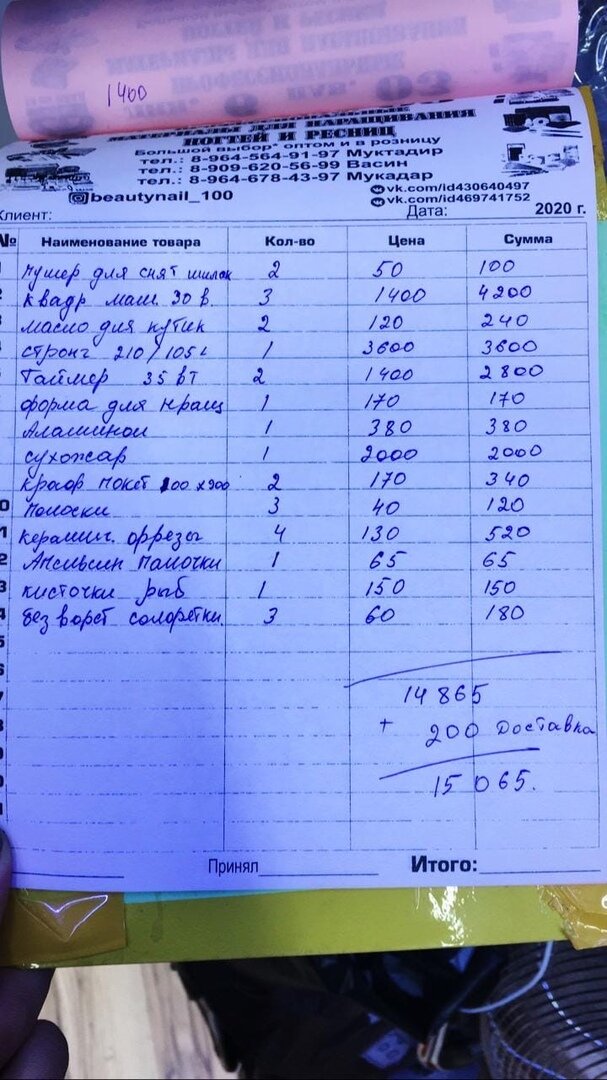 1400
МАТЕРИАЛЫ ДЛЯ НАРАЩИВАНИЯ
НОГТЕЙ И РЕСНИЦ
Большой выбор* оптом и в розницу
тел.: 8-964-564-91-97 Муктадир
тел.: 8-909-620-56-99 Васин
тел.: 8-964-678-43-97 Мукадар
beautynail_100
vk.com/id430640497
vk.com/id469741752
Клиент: Дата: 2020 г.
№ Наименование товара Кол-во Цена Сумма
пушер для снят шилак 2 50 100
квадр маш. 30 в. 3 1400 4200
масло для кутик 2 120 240
стронг 210/105 1 3600 3600
Таймер 35 вт 2 1400 2800
форма для наращ 1 170 170
1 380 380
сухожар 1 2000 2000
крафт пакет 100 x 200 2 170 340
полоски 3 40 120
керамич. фрезы 4 130 520
Апельсин палочки 1 65 65
кисточки рыб 1 150 150
без ворст салфетки 3 60 180
14865
+ 200 Доставка
15 065.
Принял Итого: